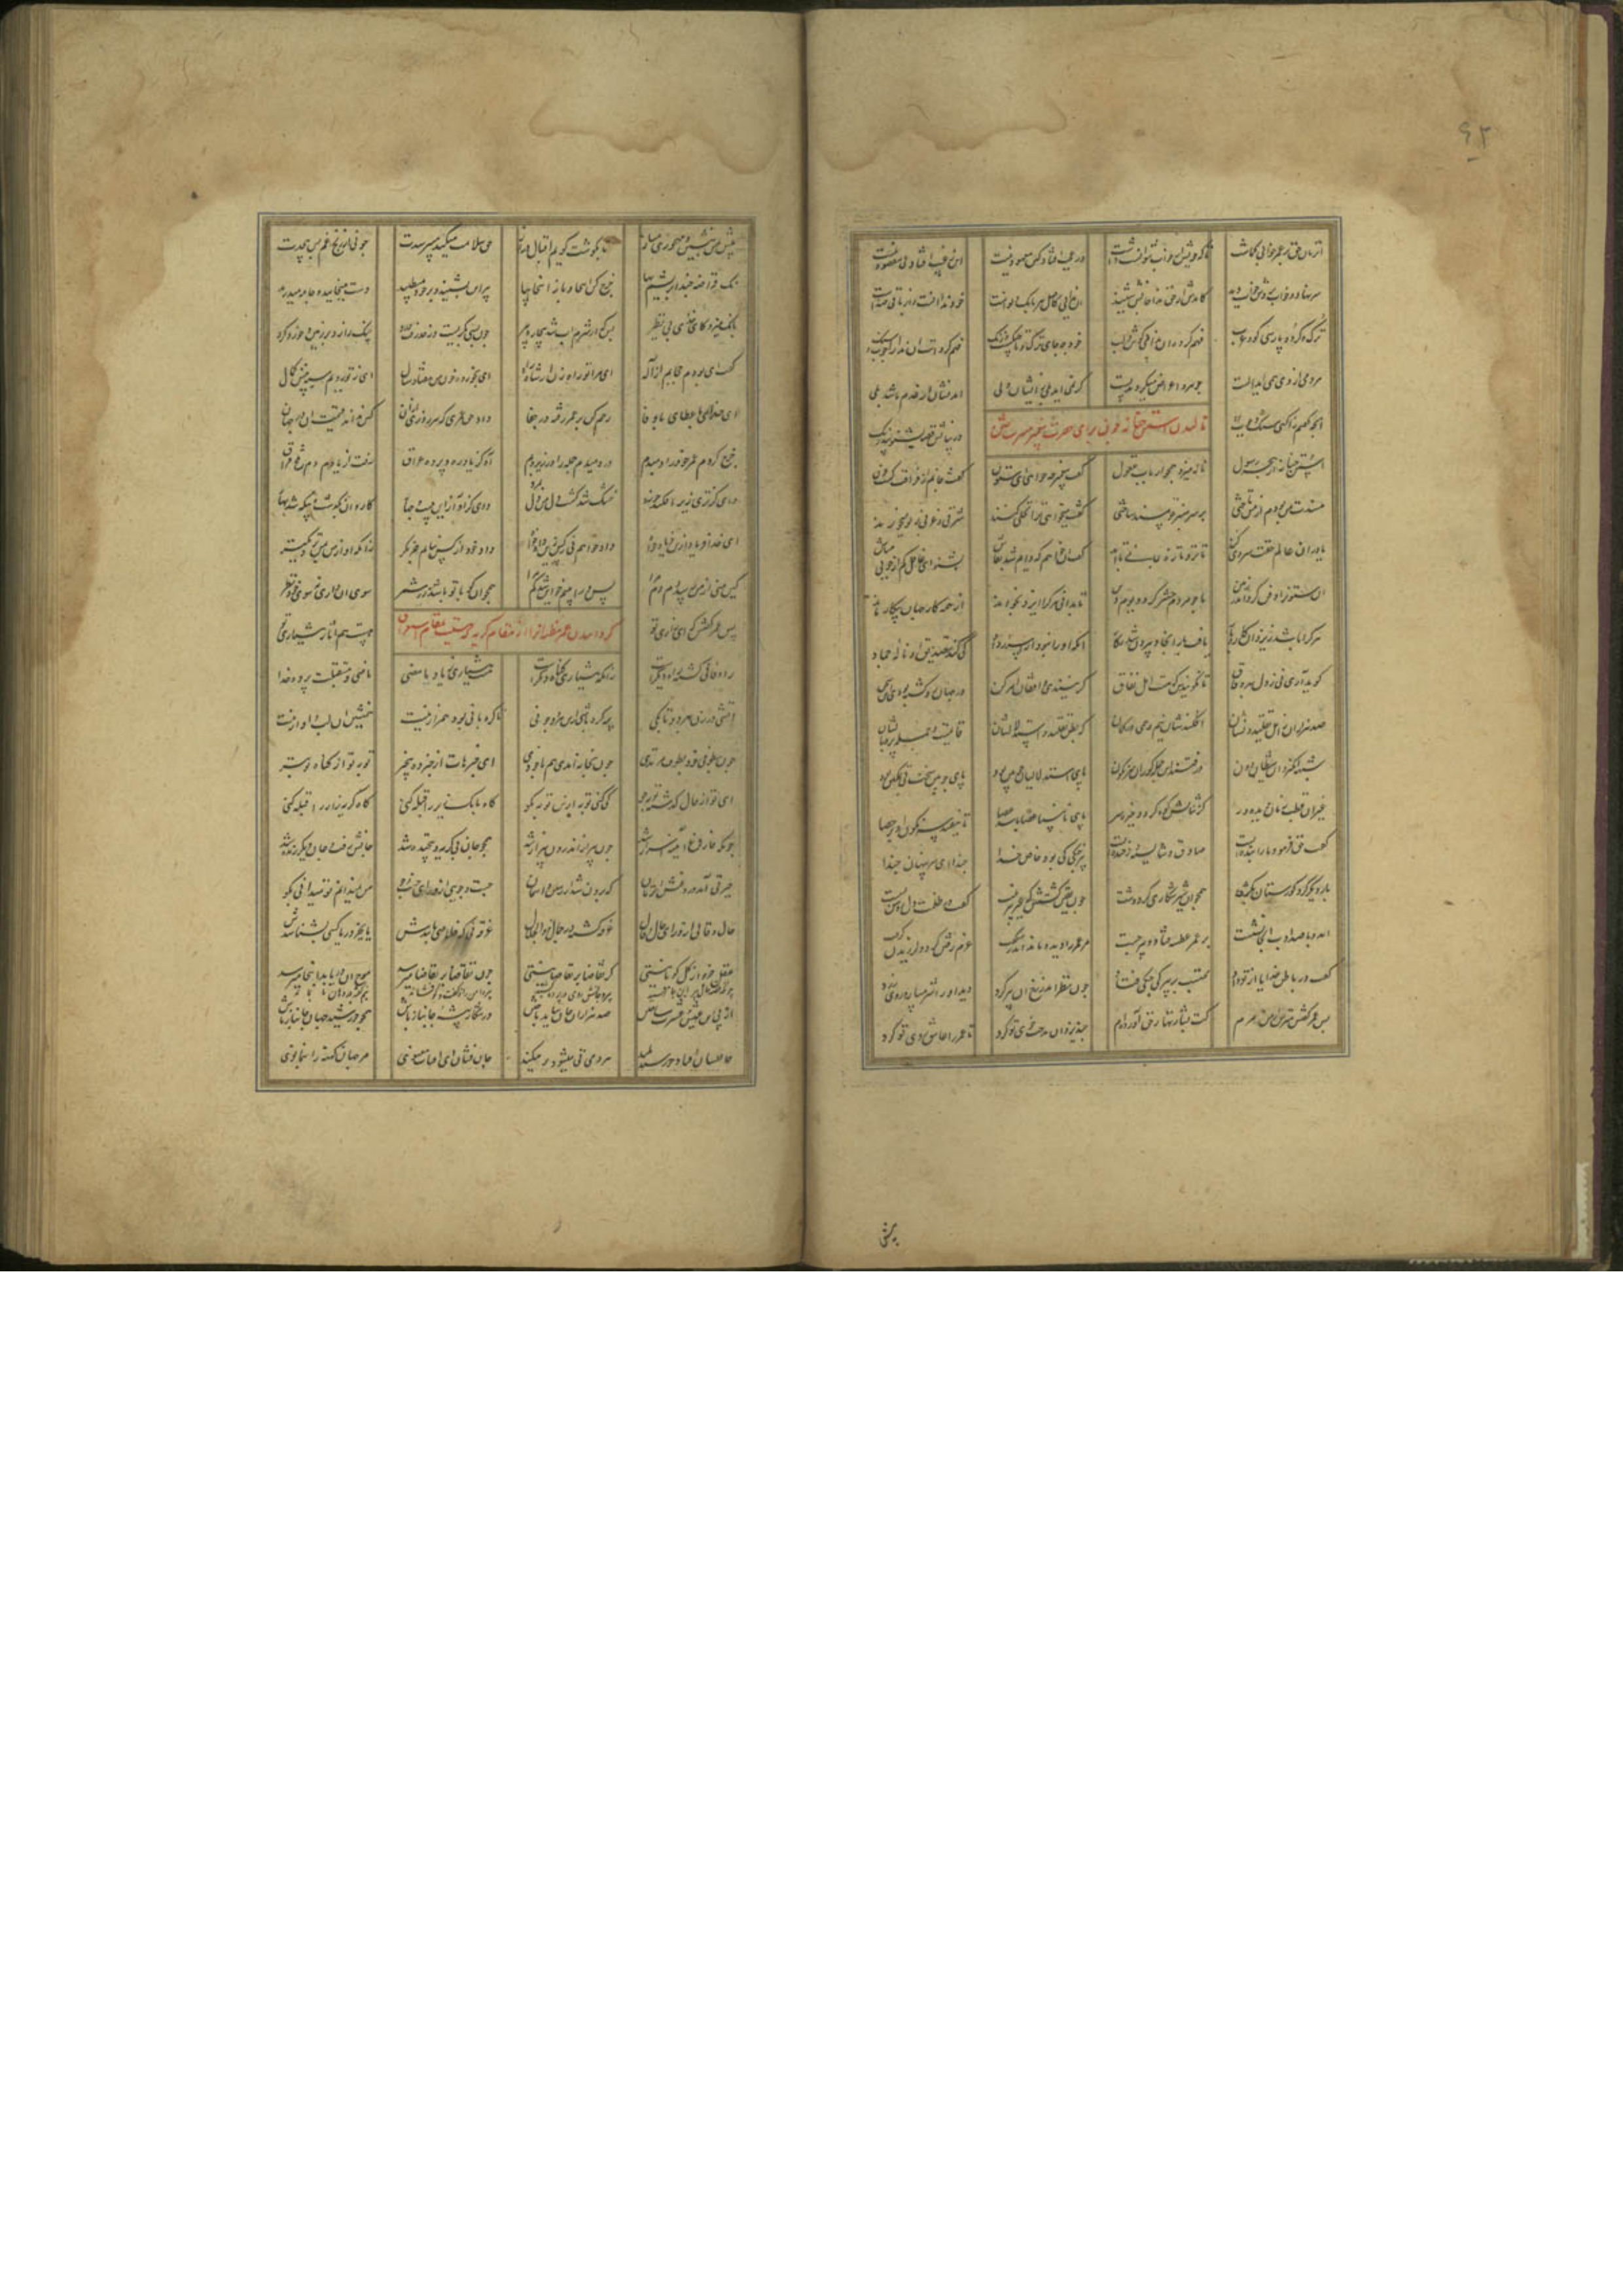 ۶۲
آن زمان حق بر عمر خوابی گماشت تا که خویش از خواب نتوانست داشت در عجب افتاد کین معهود نیست این ز غیب افتاد بی مقصود نیست
سر نهاد و خواب بردش خواب دید کامدش از حق ندا جانش شنید آن ندایی کاصل هر بانگ و نواست خود ندا آنست و این باقی صداست
ترک و کرد و پارسی گو و عرب فهم کرده آن ندا بی گوش و لب خود چه جای ترک و تاجیکست و زنگ فهم کردست آن ندا را چوب و سنگ
هر دمی از وی همی آید الست جوهر و اعراض میگردند هست گر نمی آید بلی زیشان ولی آمدنشان از عدم باشد بلی
آنچه گفتم ز آگهی سنگ و چوب در بیانش قصه
نالیدن ستن حنانه چون برای حضرت پیغمبر منبر ساختن
استن حنانه از هجر رسول ناله میزد همچو ارباب عقول گفت پیغمبر چه خواهی ای ستون گفت جانم از فراقت گشت خون
مسندت من بودم از من تاختی بر سر منبر تو مسند ساختی گفت میخواهی ترا نخلی کنند شرقی و غربی ز تو میوه
یا در آن عالم حقت سروی کند تا تر و تازه بمانی تا ابد گفت آن خواهم که دایم شد بقاش بشنو ای غافل کم از چوبی مباش
آن ستون را دفن کرد اندر زمین تا چو مردم حشر گردد یوم دین تا بدانی هر کرا ایزد بخواند از همه کار جهان بیکار ماند
هر کرا باشد ز یزدان کار و بار یافت بار آنجا و بیرون شد ز کار آنکه او را نبود از اسرار داد کی کند تصدیق او ناله جماد
گوید آری نی ز دل بهر وفاق تا نگویندش که هست اهل نفاق گر نیندی واقفان امر کن در جهان رد گشته بودی این سخن
صد هزاران ز اهل تقلید و نشان افکندشان نیم وهمی در گمان که بظن تقلید و استدلالشان قایمست و جمله پر و بالشان
شبهه انگیزد آن شیطان دون در فتند این جمله کوران سرنگون پای استدلالیان چوبین بود پای چوبین سخت بی تمکین بود
غیر آن قطب زمان دیده ور کز ثباتش کوه گردد خیره سر پای نابینا عصا باشد عصا تا نیفتد سرنگون او بر حصا
گفت حق فرمود ما را بنده ایست صادق و شایسته و فرخنده ایست پیر چنگی کی بود خاص خدا حبذا ای سر پنهان حبذا
بار دیگر گرد گورستان بگشت همچو آن شیر شکاری گرد دشت چون یقین گشتش که غیر پیر نیست گفت در ظلمت دل روشن بسیست
آمد و با صد ادب آنجا نشست بر عمر عطسه فتاد و پیر جست مر عمر را دید و ماند اندر شگفت عزم رفتن کرد و لرزیدن گرفت
گفت در باطن خدایا از تو داد محتسب بر پیرکی چنگی فتاد چون نظر اندر رخ آن پیر کرد دید او را شرمسار و روی زرد
پس عمر گفتش مترس از من مرم کت بشارتها ز حق آورده ام چند یزدان مدحت خوی تو کرد تا عمر را عاشق روی تو کرد
پیش
پیش من بنشین و مهجوری مساز تا بگوشت گویم از اقبال راز حق سلامت میکند میپرسدت چونی از رنج و غم بی حدت
نک قراضه چند ابریشم بها خرج کن این را و باز اینجا بیا پیر این بشنید و بر خود میطپید دست میخایید و جامه میدرید
بانگ میزد کای خدای بی نظیر بس که از شرم آب شد بیچاره پیر چون بسی بگریست و ز حد رفت درد چنگ را زد بر زمین و خرد کرد
گفت ای بوده حجابم از اله ای مرا تو راه زن از شاه راه ای بخورده خون من هفتاد سال ای ز تو رویم سیه پیش کمال
ای خدای با عطای با وفا رحم کن بر عمر رفته در جفا داد حق عمری که هر روزی از آن کس نداند قیمت آن در جهان
خرج کردم عمر خود را دمبدم در دمیدم جمله را در زیر و بم آه کز یاد ره و پرده عراق رفت از یادم دم تلخ فراق
وای کز تری زیر افکند خرد خشک شد کشت دل من دل بمرد وای کز آواز این بیست و چهار کاروان بگذشت و بیگه شد نهار
ای خدا فریاد ازین فریاد خواه داد خواهم نی ز کس زین داد خواه داد خود از کس نیابم جز مگر زانکه او از من بمن نزدیکتر
کین منی از وی رسد دم دم مرا پس ورا بینم چو این شد کم مرا همچو آن کو با تو باشد زر شمر سوی او داری نه سوی خود نظر
گردانیدن عمر نظر او را از مقام گریه که هستیست بمقام استغراق
پس عمر گفتش که این زاری تو هست هم آثار هشیاری تو
راه فانی گشته راه دیگرست زانکه هشیاری گناه دیگرست هست هشیاری ز یاد ما مضی ماضی و مستقبلت پرده خدا
آتشی در زن بهر دو تا بکی پر گره باشی ازین هر دو چو نی تا گره با نی بود همراز نیست همنشین آن لب و آواز نیست
چون بطوفی خود بطوفی مرتدی چون بخانه آمدی هم با خودی ای خبرهات از خبرده بیخبر توبه تو از گناه تو بتر
ای تو از حال گذشته توبه جو کی کنی توبه ازین توبه بگو گاه بانگ زیر را قبله کنی گاه گریه زار را قبله کنی
چونکه فاروق آینه اسرار شد جان پیر از اندرون بیدار شد همچو جان بی گریه و بی خنده شد جانش رفت و جان دیگر زنده شد
حیرتی آمد درونش آن زمان که برون شد از زمین و آسمان جست و جویی از ورای جست و جو من نمیدانم تو میدانی بگو
حال و قالی از ورای حال و قال غرقه گشته در جمال ذوالجلال غرقه نی که خلاصی باشدش یا بجز دریا کسی بشناسدش
عقل جزو از کل گویا نیستی گر تقاضا بر تقاضا نیستی چون تقاضا بر تقاضا میرسد موج آن دریا بدینجا میرسد
چونکه قصه حال پیر اینجا رسید پیر و حالش روی در پرده کشید پیر دامن را ز گفت و گو فشاند نیم گفته در دهان ما بماند
از پی این عیش و عشرت ساختن صد هزاران جان بشاید باختن در شکار بیشه جان باز باش همچو خورشید جهان جانباز باش
جان فشان افتاد خورشید بلند هر دمی تی میشود پر میکند جان فشان ای آفتاب معنوی مر جهان کهنه را بنما نوی